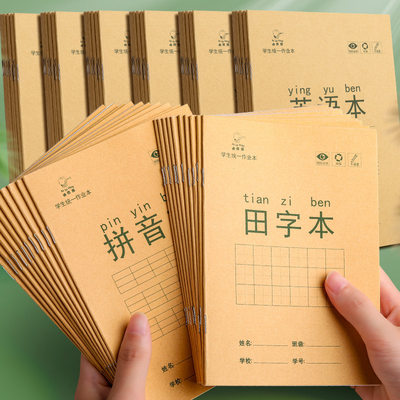 学生统一作业本
ying yu ben
英语本
学生统一作业本
pin yin
拼音
姓名:
学校:
学生统一作业本
tian zi ben
田字本
姓名: 班级:
学校: 学号: